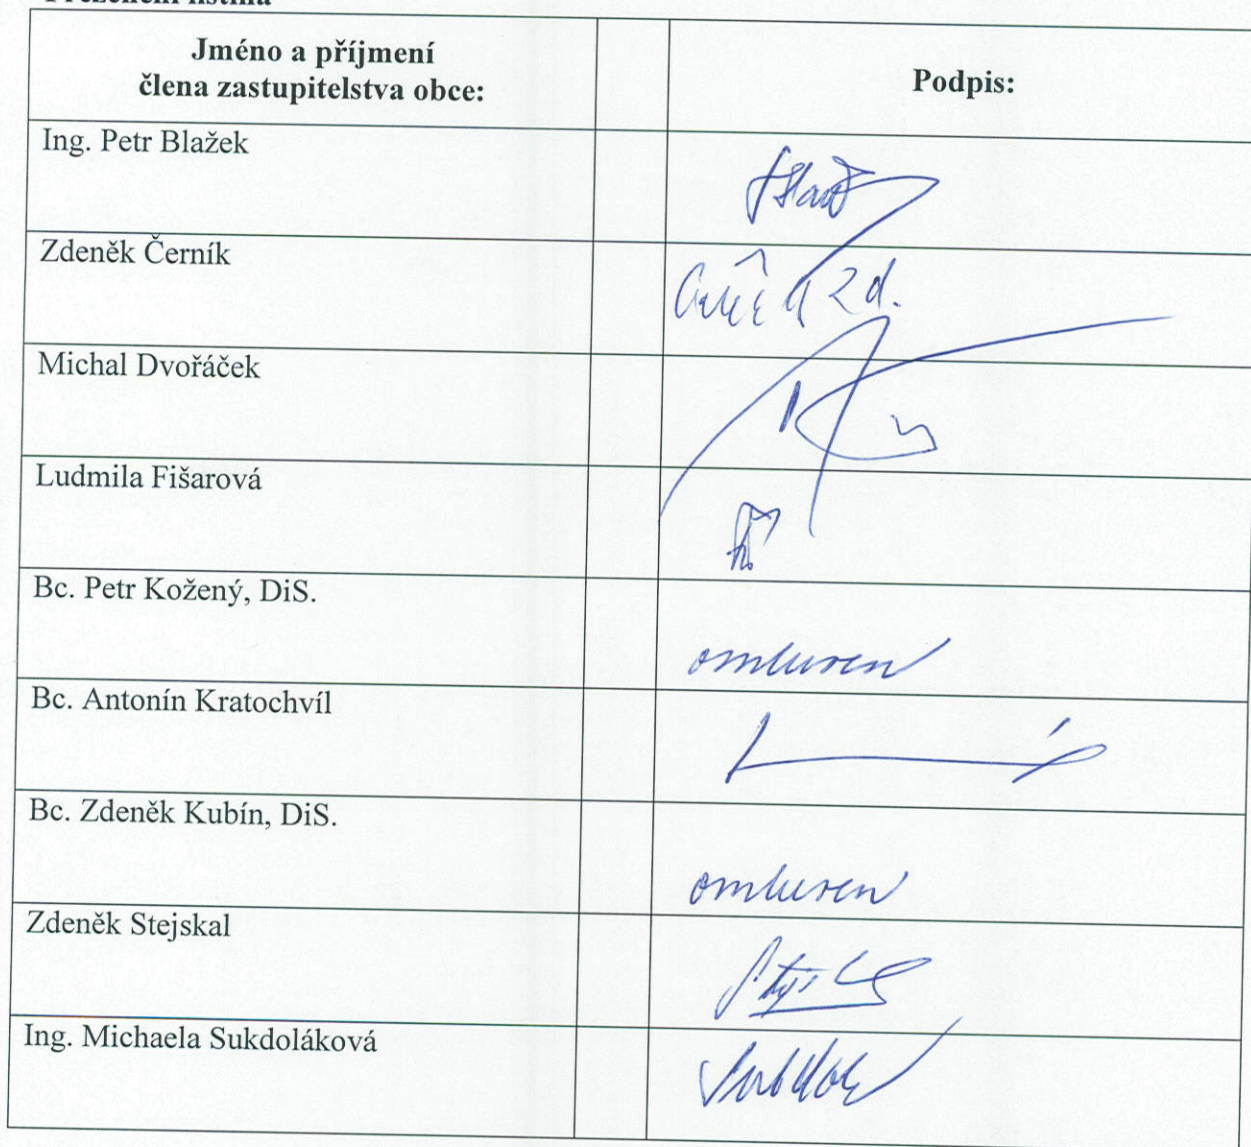 Jméno a příjmení
člena zastupitelstva obce:
Podpis:
Ing. Petr Blažek
Zdeněk Černík
Zd.
Michal Dvořáček
Ludmila Fišarová
Bc. Petr Kožený, DiS.
omluven
Bc. Antonín Kratochvíl
Bc. Zdeněk Kubín, DiS.
omluven
Zdeněk Stejskal
Ing. Michaela Sukdoláková